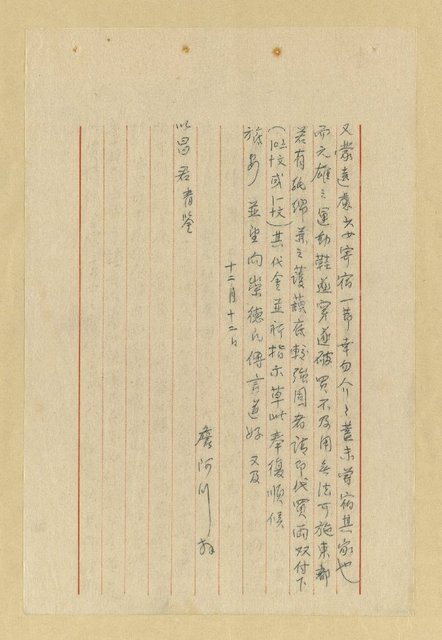 又蒙遠慮少女寄宿一節幸勿介之蓋未曾宿其家也
而元雄之運動鞋遂穿遂破買不及用無法可施東都
若有紙綿兼之護謨底較強固者請即代買兩双付下
(10文或1文)其代金並祈指示草此奉復順候
旅安 並望向崇德氏傳言道好 又及
十二月十二日
詹阿川拜
以昌君青鑒